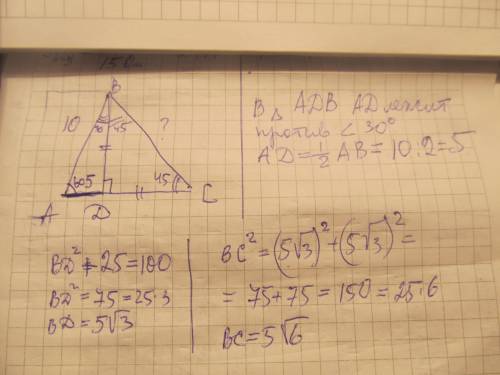 150
B
10
30 45
?
60 5
45
A D C
В △ ADB AD лежит
против < 30°
AD = 1/2 AB = 10 : 2 = 5
BD² + 25 = 100
BD² = 75 = 25·3
BD = 5√3
BC² = (5√3)² + (5√3)² =
= 75 + 75 = 150 = 25·6
BC = 5√6